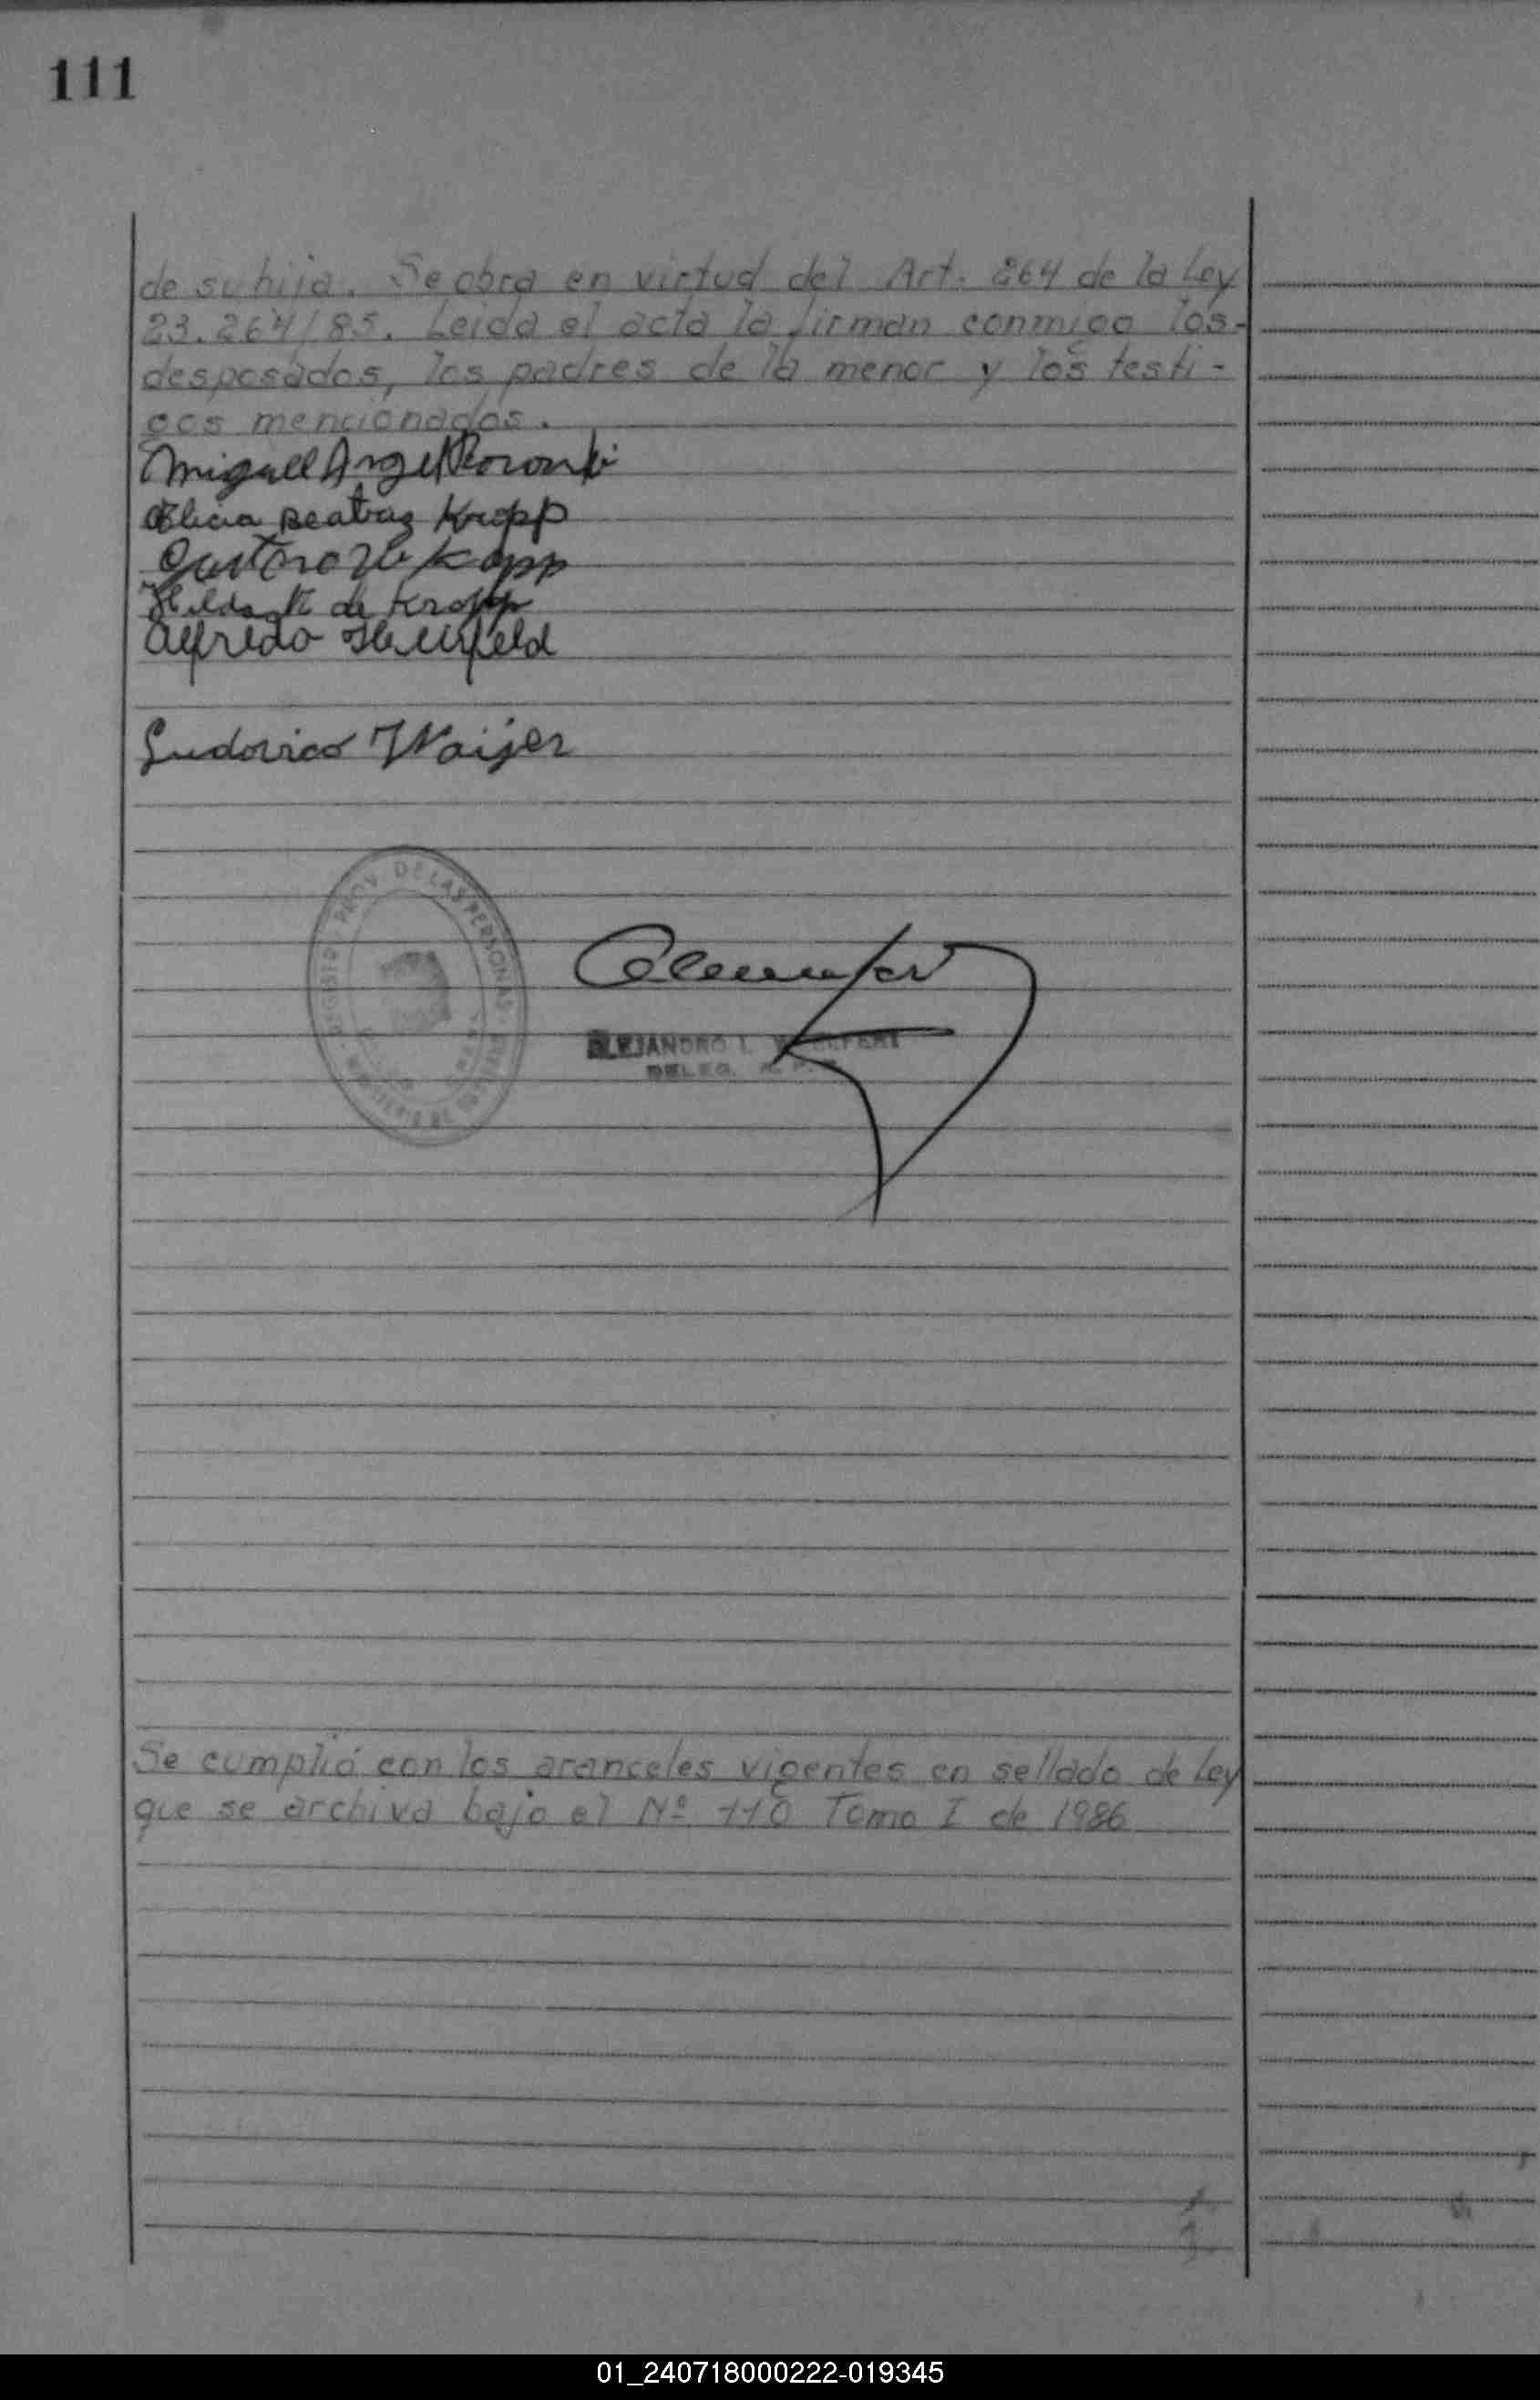 111
de su hija. Se obra en virtud del Art. 264 de la Ley
23.264/85. Leida el acta la firman conmigo los-
desposados, los padres de la menor y los testi-
gos mencionados.
Miguel Angel
Alicia Beatriz Kropp
Kropp
Hilda K de Kropp
Alfredo
Ludovico Waiger
REGISTRO PROV. DE LAS PERSONAS
MINISTERIO DE
ALEJANDRO I.
DELEG. R. P.
Se cumplió con los aranceles vigentes en sellado de Ley
que se archiva bajo el Nº 110 Tomo I de 1986
01_240718000222-019345